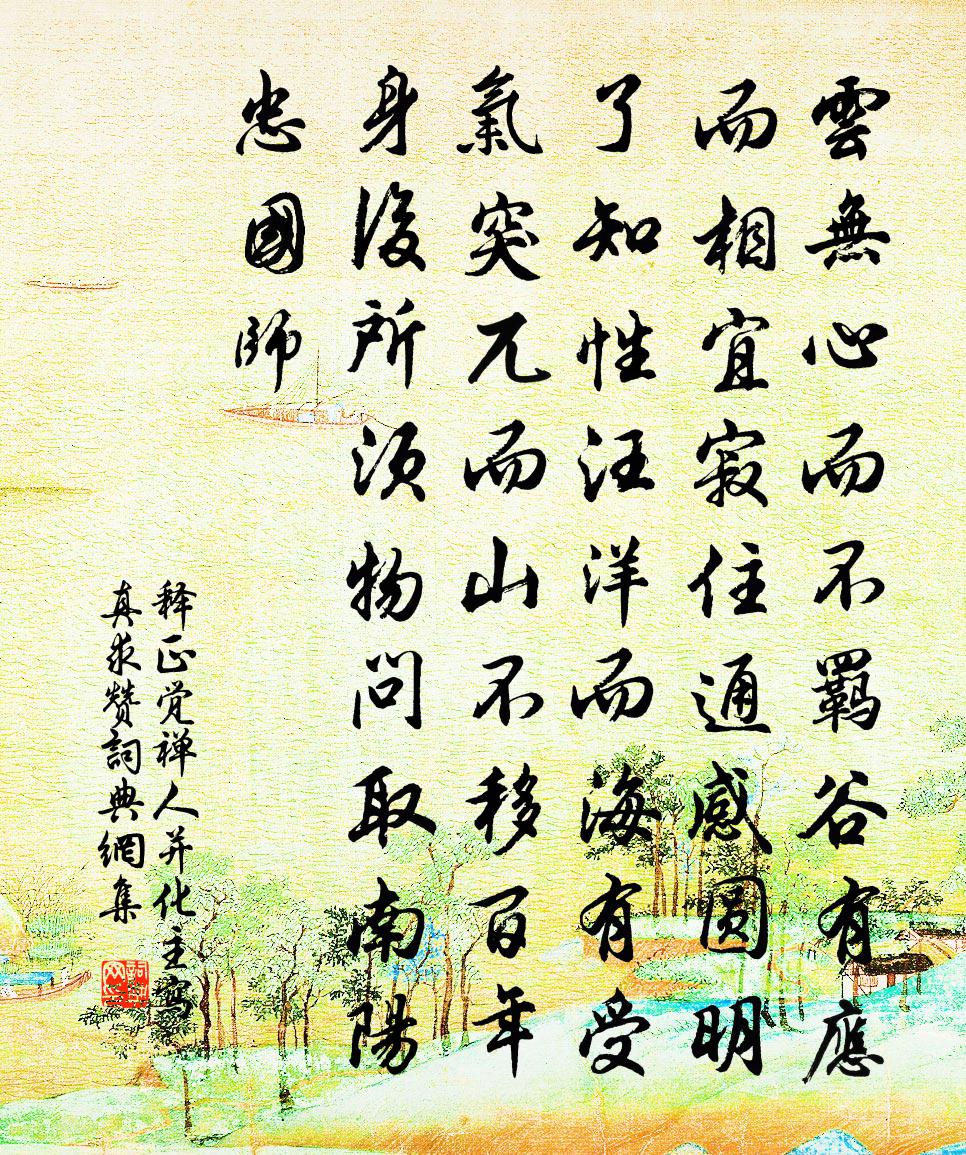 雲無心而不羈谷有應
而相宜寂住通感圆明
了知性汪洋而海有受
氣突兀而山不移百年
身後所須物問取南陽
忠國師
释正觉禅人并化主寫
真求赞詞典網集